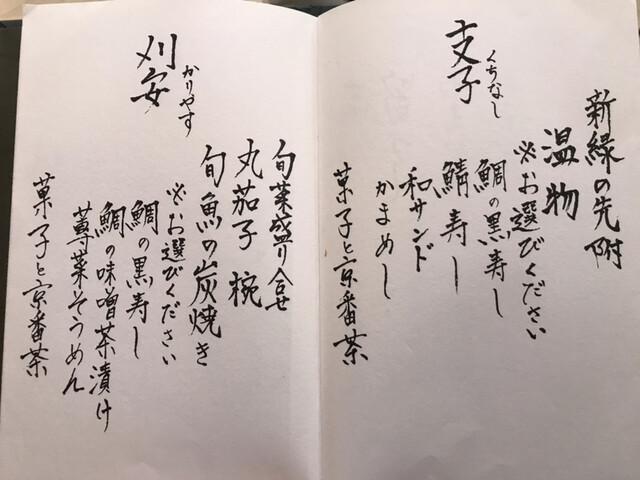 支子
くちなし
新緑の先附
温物
※お選びください
鯛の黒寿し
鯖寿し
和サンド
かまめし
菓子と京番茶
刈安
かりやす
旬菜盛り合せ
丸茄子 椀
旬魚の炭焼き
※お選びください
鯛の黒寿し
鯛の味噌茶漬け
蓴菜そうめん
菓子と京番茶